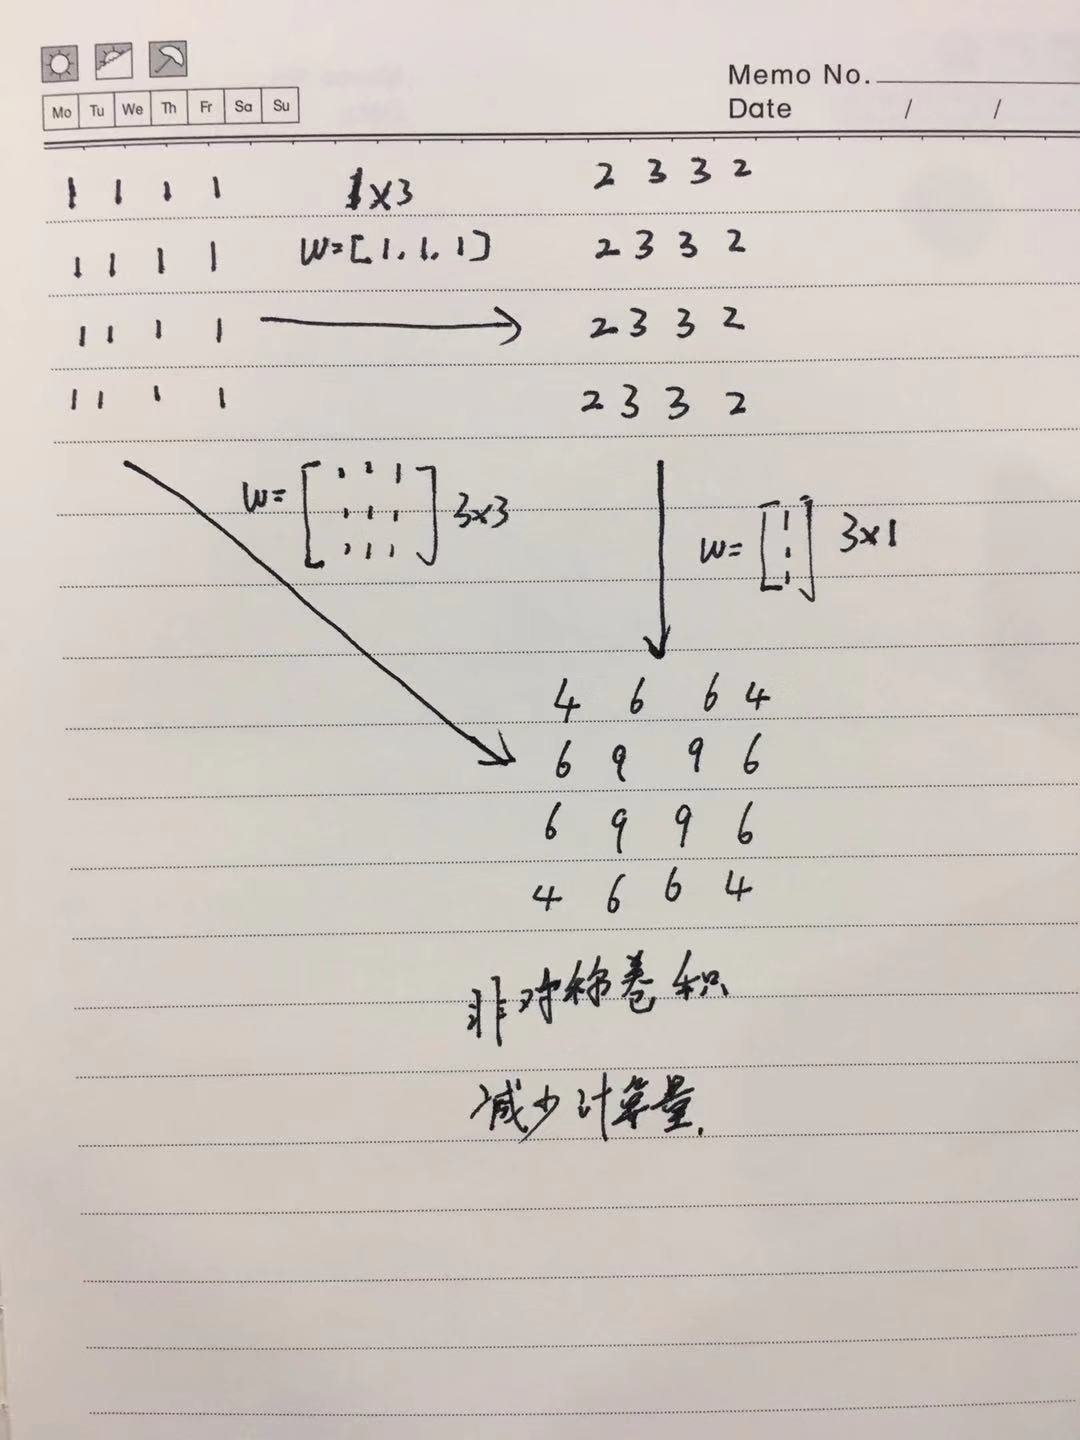 Mo Tu We Th Fr Sa Su
Memo No.
Date / /
1 1 1 1
1 1 1 1
1 1 1 1
1 1 1 1
1×3
W=[1,1,1]
2 3 3 2
2 3 3 2
2 3 3 2
2 3 3 2
W=
1 1 1
1 1 1
1 1 1
3×3
W=
1
1
1
3×1
4 6 6 4
6 9 9 6
6 9 9 6
4 6 6 4
非对称卷积
减少计算量.